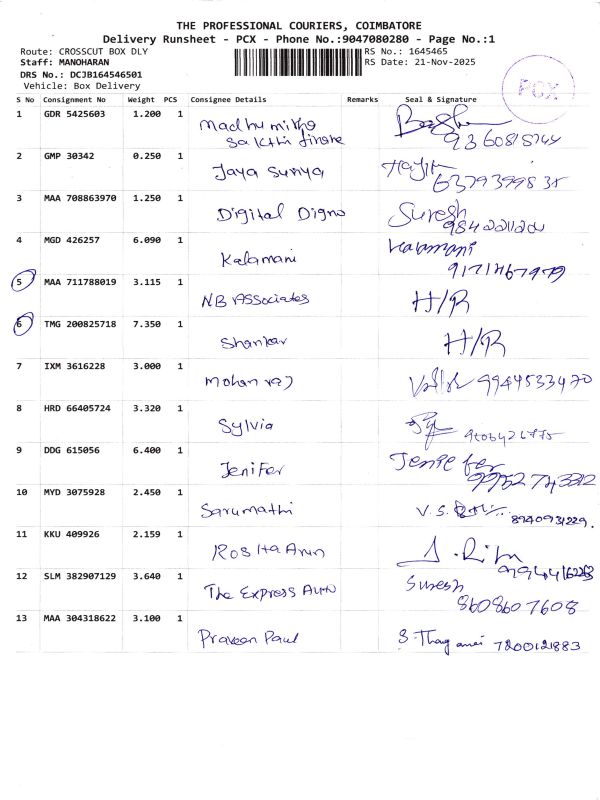 THE PROFESSIONAL COURIERS, COIMBATORE
Delivery Runsheet - PCX - Phone No.:9047080280 - Page No.:1
Route: CROSSCUT BOX DLY RS No.: 1645465
Staff: MANOHARAN RS Date: 21-Nov-2025
DRS No.: DCJB164546501
Vehicle: Box Delivery
PCX
S No Consignment No Weight PCS Consignee Details Remarks Seal & Signature
1 GDR 5425603 1.200 1 Madhumitha
Sakthi
2 GMP 30342 0.250 1 Jaya Surya
3 MAA 708863970 1.250 1 Digital Digno Suresh
4 MGD 426257 6.090 1 Kalamani Kalamani
9171467979
5 MAA 711788019 3.115 1 NB Associates H/R
6 TMG 200825718 7.350 1 Shankar H/R
7 IXM 3616228 3.000 1 Mohan raj 9944533470
8 HRD 66405724 3.320 1 Sylvia
9 DDG 615056 6.400 1 Jenifer Jenifer
9952743312
10 MYD 3075928 2.450 1 Sarumathi V.S.
8940931229.
11 KKU 409926 2.159 1 Rosita Arun
12 SLM 382907129 3.640 1 The Express Auto Suresh
8608607608
13 MAA 304318622 3.100 1 Praveen Paul 7200121883